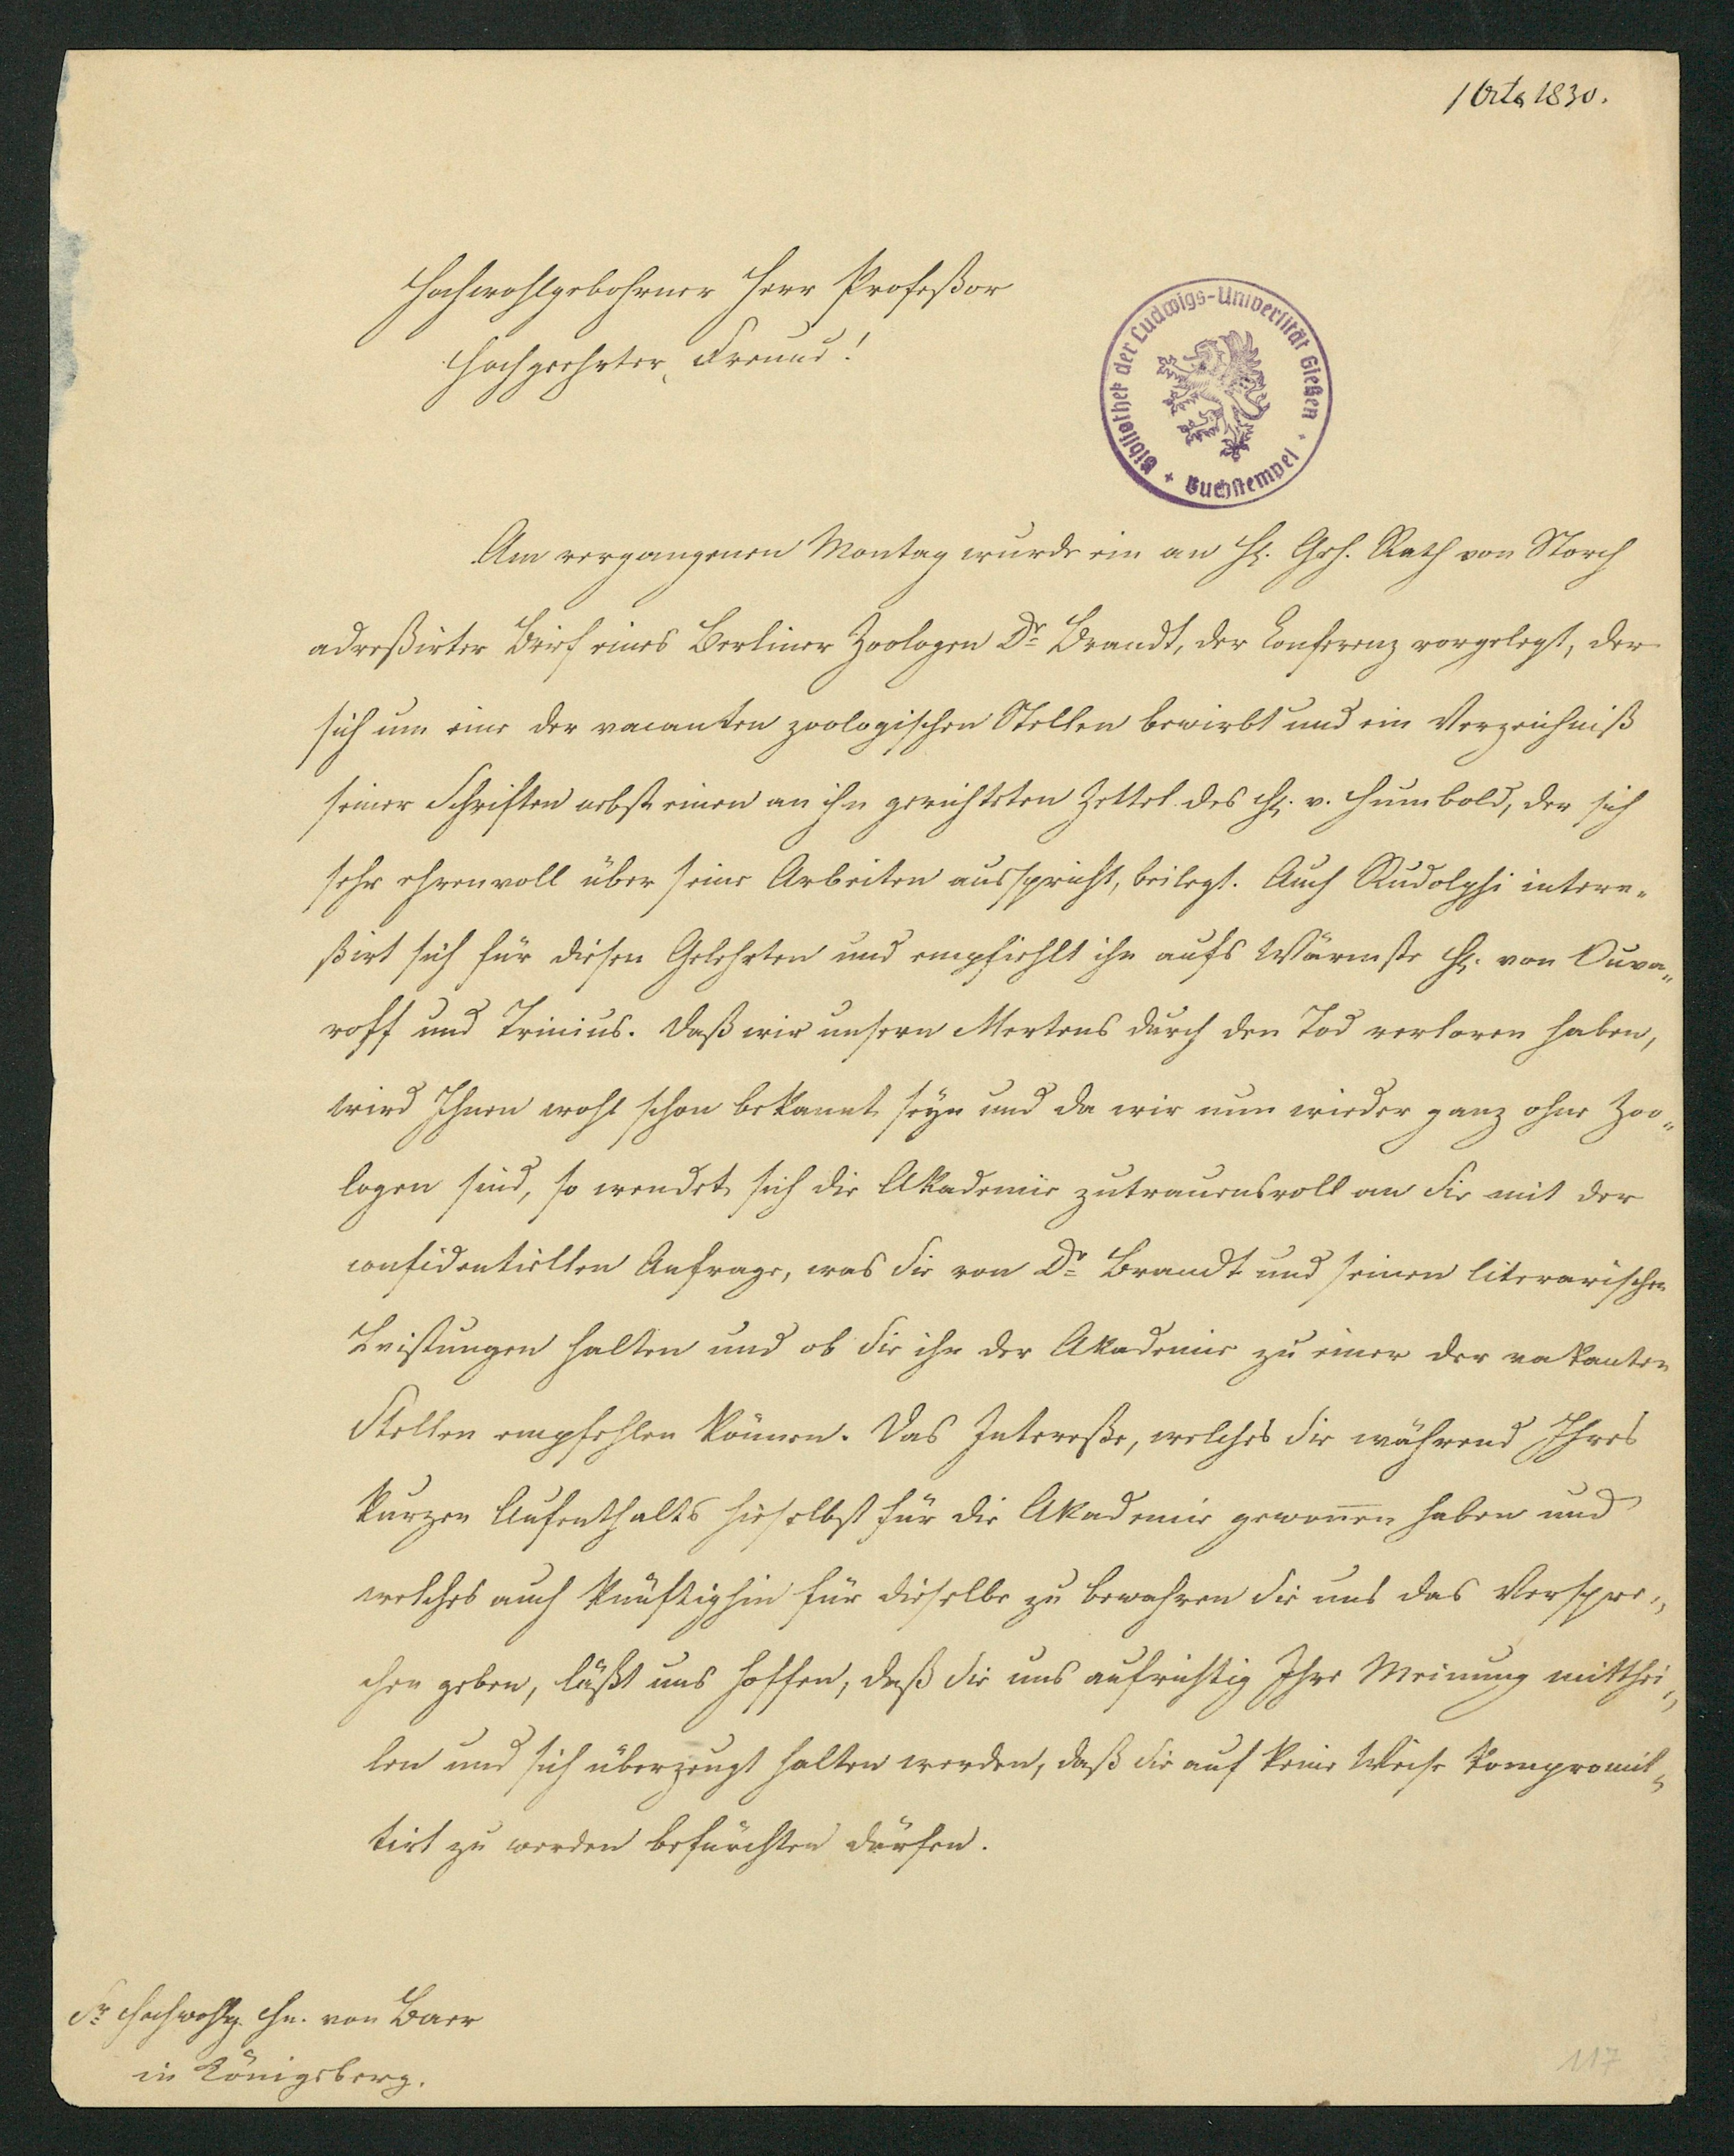 1 Octb 1830.
Hochwohlgebohrner Herr Profeßor
Hochgeehrter Freund!
Bibliothek der Ludwigs-Universität Gießen + Buchstempel +
Am vergangenen Montag wurde ein an H. Geh. Rath von Storch
adreßirter Brief eines Berliner Zoologen Dr Brandt, der Conferenz vorgelegt, der
sich um eine der vacanten zoologischen Stellen bewirbt und ein Verzeichniß
seiner Schriften nebst einen an ihn gerichteten Zettel des H. v. Humbold, der sich
sehr ehrenvoll über seine Arbeiten ausspricht, beilegt. Auch Rudolphi intere-
ßirt sich für diesen Gelehrten und empfiehlt ihn aufs Wärmste H. von Ouva-
roff und Trinius. Daß wir unsern Mertens durch den Tod verloren haben,
wird Ihnen wohl schon bekannt seyn und da wir nun wieder ganz ohne Zoo-
logen sind, so wendet sich die Akademie zutrauensvoll an Sie mit der
confidentiellen Anfrage, was Sie von Dr Brandt und seinen literarischen
Leistungen halten und ob Sie ihn der Akademie zu einer der vakanten
Stellen empfehlen können. Das Intereße, welches Sie während Ihres
kurzen Aufenthalts hieselbst für die Akademie gewonnen haben und
welches auch künftighin für dieselbe zu bewahren Sie uns das Verspre-
chen geben, läßt uns hoffen, daß Sie uns aufrichtig Ihre Meinung mitthei-
len und sich überzeugt halten werden, daß Sie auf keine Weise kompromit-
tirt zu werden befürchten dürfen.
Sr Hochwohlg. Hn. von Baer
in Königsberg.
117